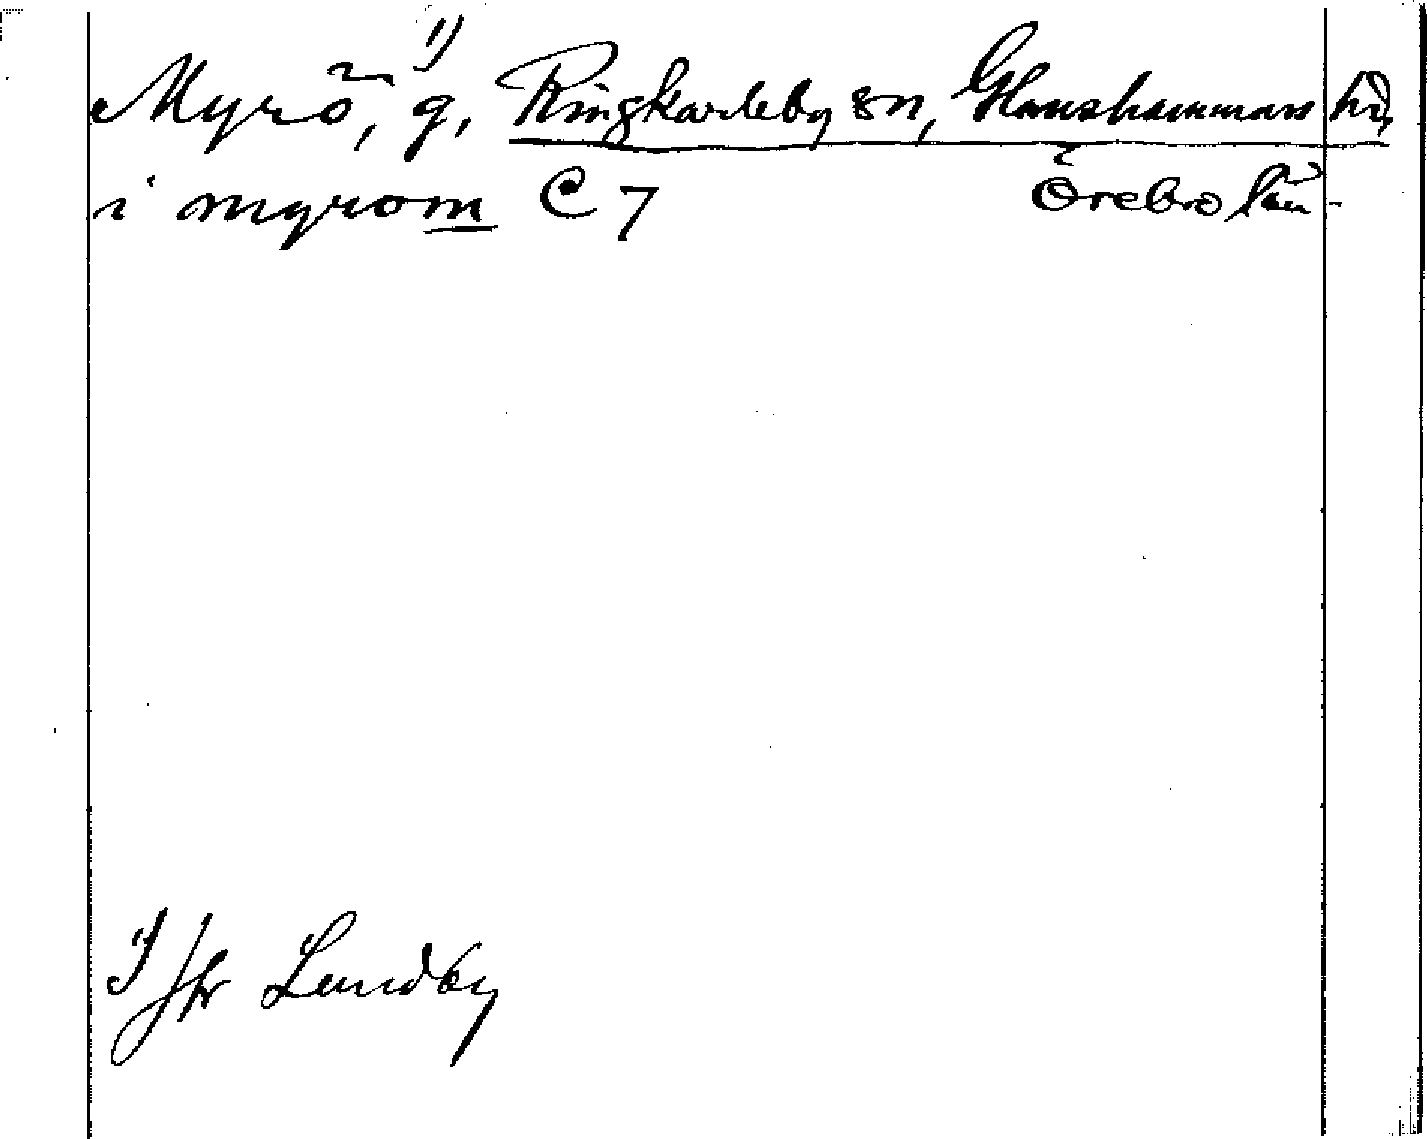 Myrö,¹⁾ g, Ringkarleby sn, Glanshammars hd,
i myrom C 7 Örebro län.
1) Jfr Lundby